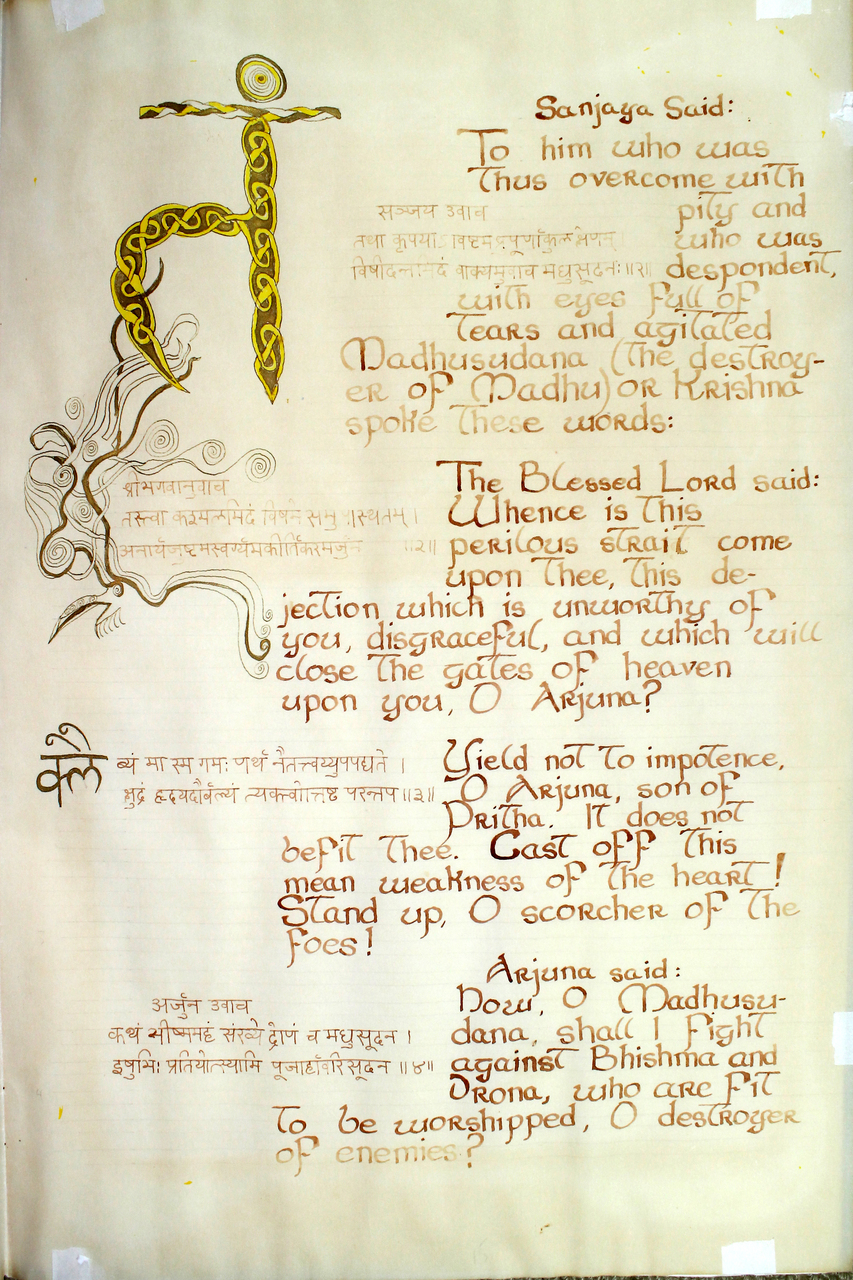 Sanjaya Said:
To him who was
Thus overcome with
सञ्जय उवाच
pity and
तथा कृपया
who was
वाक्यमुवाच मधुसूदनः॥१॥
despondent,
with eyes full of
Tears and agitated
Madhusudana (The destroy-
er of Madhu) or Krishna
spoke These words:
The Blessed Lord said:
श्रीभगवानुवाच
Whence is This
तस्त्वा कश्मलमिदं विषमे
perilous strait come
॥२॥
upon Thee, This de-
jection which is unworthy of
you, disgraceful, and which will
close The gates of heaven
upon you, O Arjuna?
क्लै
ब्यं मा स्म गमः नैतत्त्वय्युपपद्यते ।
Yield not To impotence,
क्षुद्रं हृदयदौर्बल्यं परन्तप॥३॥
O Arjuna, son of
Pritha. It does not
befit Thee. Cast off This
mean weakness of The heart!
Stand up, O scorcher of The
foes!
Arjuna said:
अर्जुन उवाच
Now, O Madhusu-
कथं भीष्ममहं संख्ये द्रोणं च मधुसूदन ।
dana, shall I Fight
इषुभिः प्रतियोत्स्यामि ॥४॥
against Bhishma and
Drona, who are Fit
To be worshipped, O destroyer
of enemies?